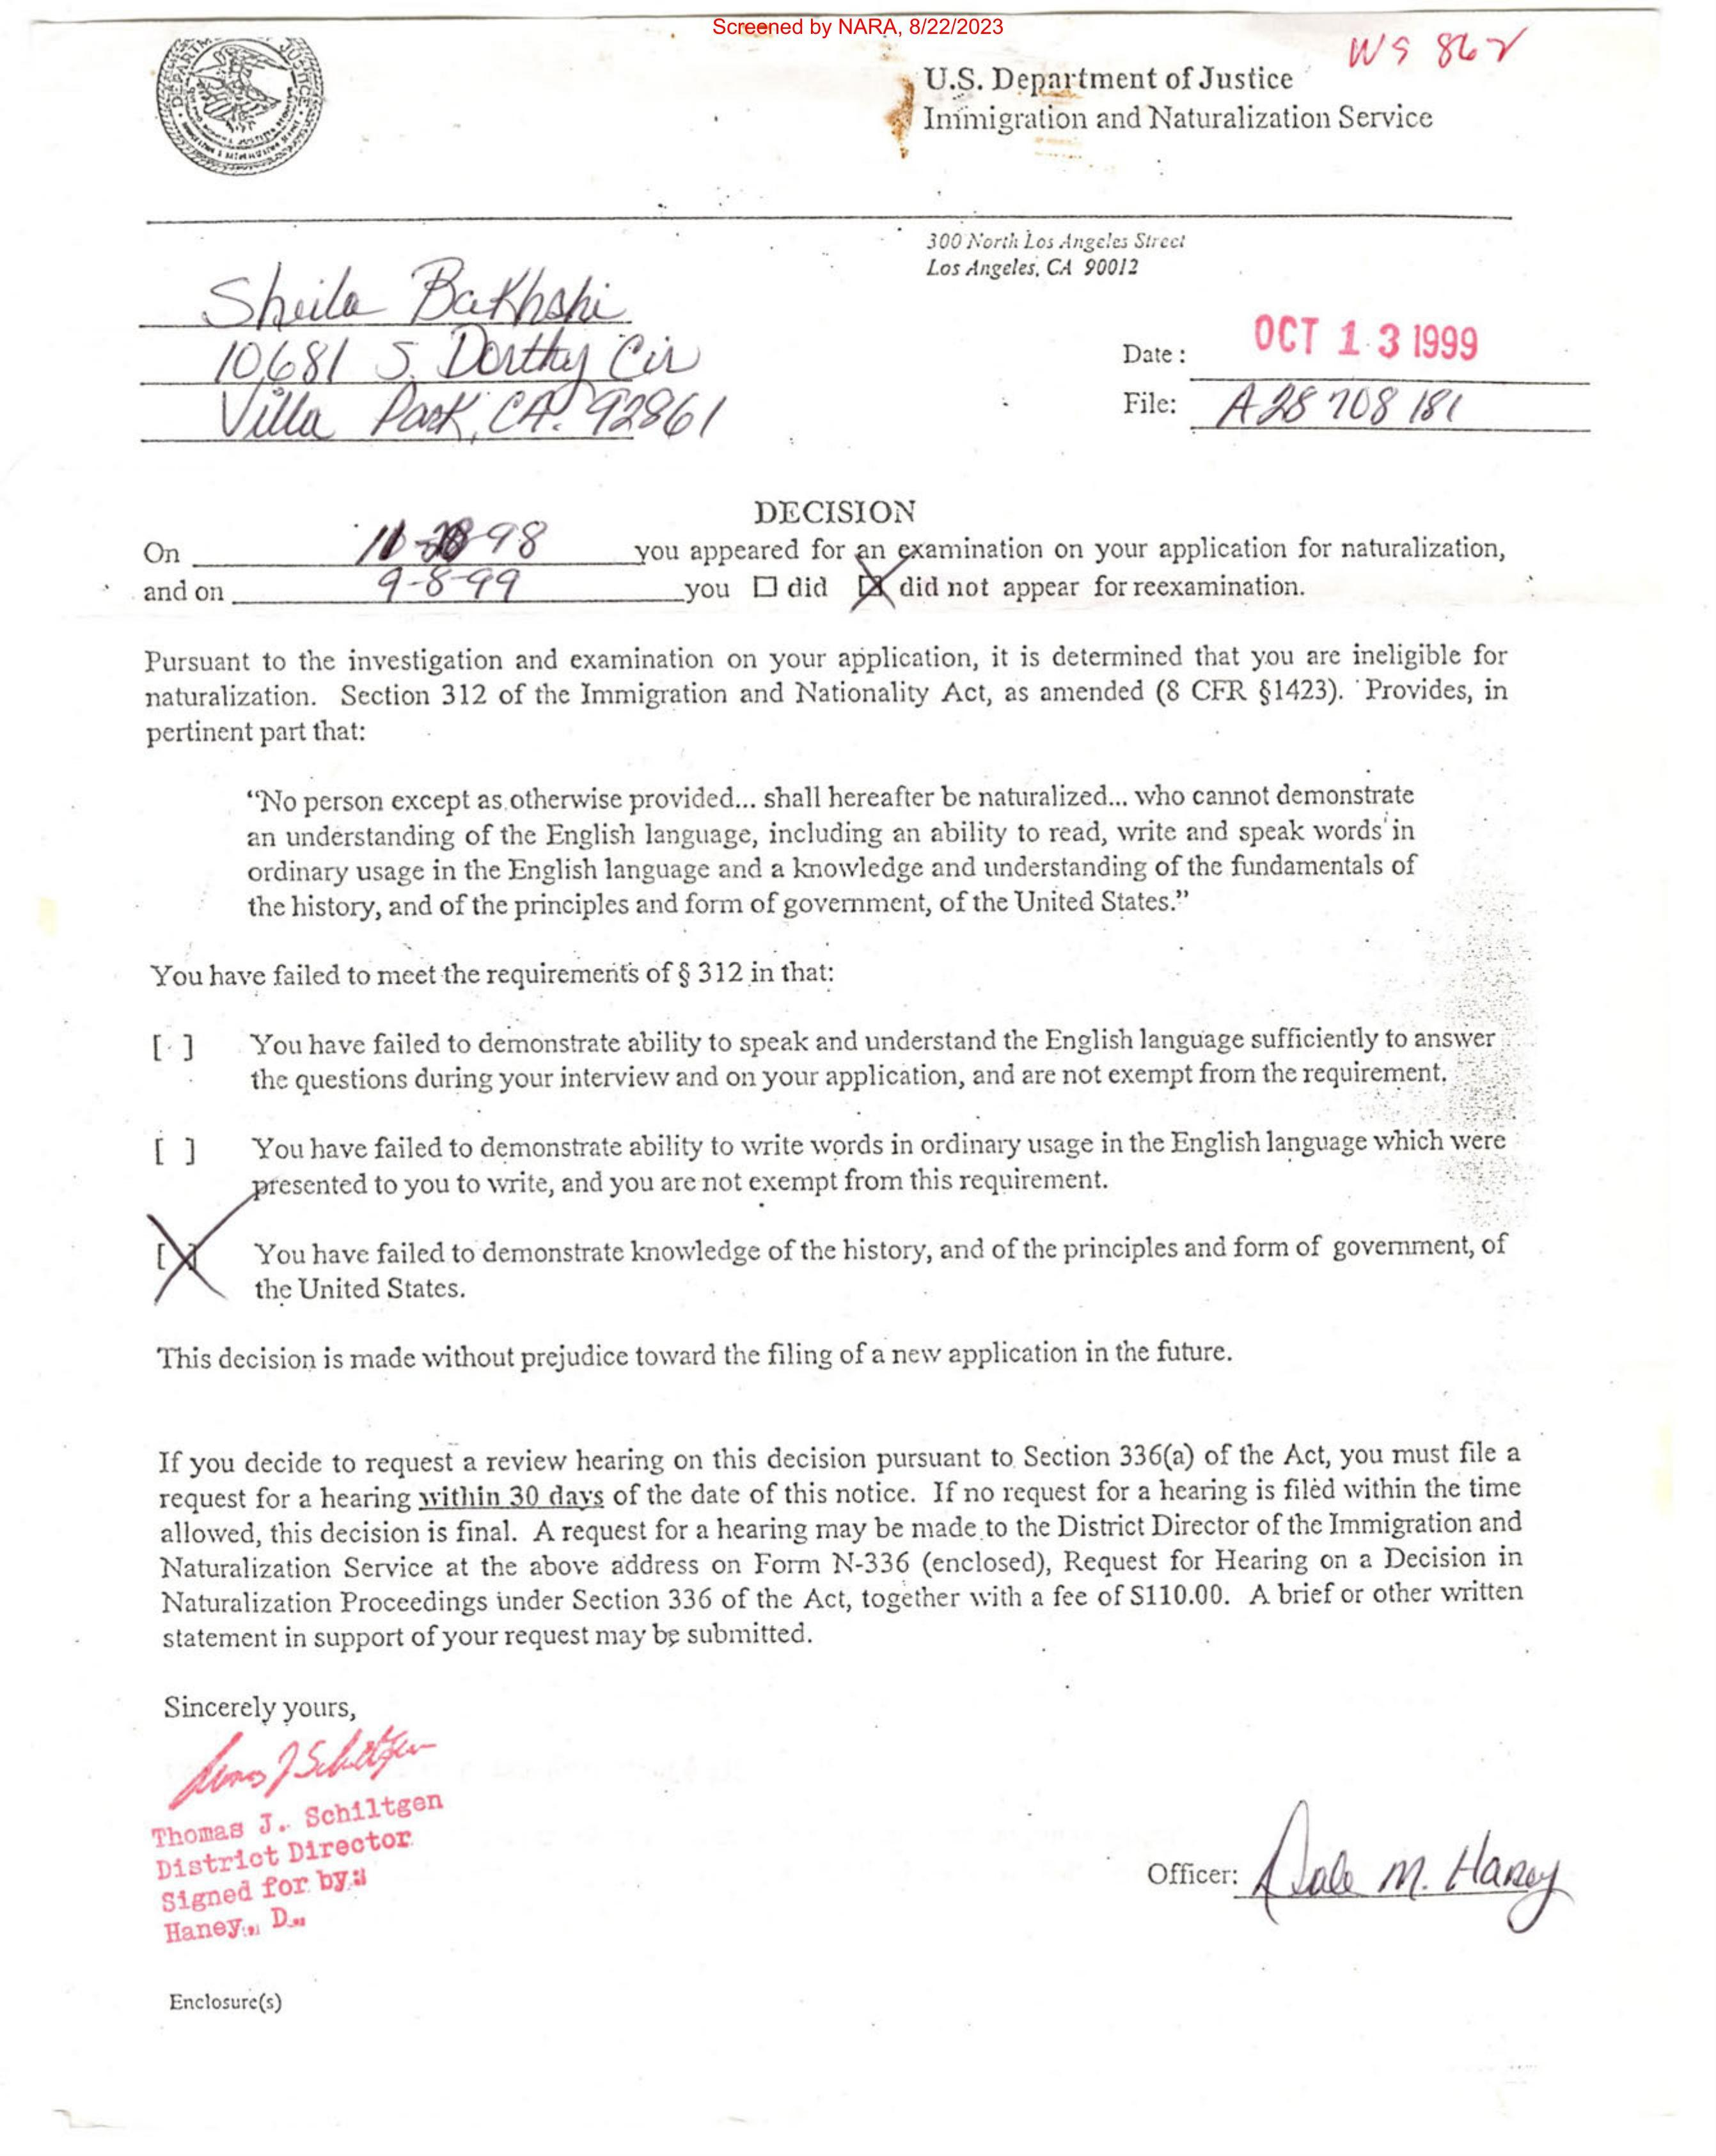 Screened by NARA, 8/22/2023
WS 862
U.S. Department of Justice
Immigration and Naturalization Service
300 North Los Angeles Street
Los Angeles, CA 90012
Sheila Bakhshi
10681 S. Dorthy Cir
Villa Park, CA. 92861
Date : OCT 13 1999
File: A28 708 181
DECISION
On 98 you appeared for an examination on your application for naturalization,
and on 9-8-99 you ☐ did ☒ did not appear for reexamination.
Pursuant to the investigation and examination on your application, it is determined that you are ineligible for
naturalization. Section 312 of the Immigration and Nationality Act, as amended (8 CFR §1423). Provides, in
pertinent part that:
“No person except as otherwise provided... shall hereafter be naturalized... who cannot demonstrate
an understanding of the English language, including an ability to read, write and speak words in
ordinary usage in the English language and a knowledge and understanding of the fundamentals of
the history, and of the principles and form of government, of the United States.”
You have failed to meet the requirements of § 312 in that:
[ ] You have failed to demonstrate ability to speak and understand the English language sufficiently to answer
the questions during your interview and on your application, and are not exempt from the requirement.
[ ] You have failed to demonstrate ability to write words in ordinary usage in the English language which were
presented to you to write, and you are not exempt from this requirement.
[X] You have failed to demonstrate knowledge of the history, and of the principles and form of government, of
the United States.
This decision is made without prejudice toward the filing of a new application in the future.
If you decide to request a review hearing on this decision pursuant to Section 336(a) of the Act, you must file a
request for a hearing within 30 days of the date of this notice. If no request for a hearing is filed within the time
allowed, this decision is final. A request for a hearing may be made to the District Director of the Immigration and
Naturalization Service at the above address on Form N-336 (enclosed), Request for Hearing on a Decision in
Naturalization Proceedings under Section 336 of the Act, together with a fee of $110.00. A brief or other written
statement in support of your request may be submitted.
Sincerely yours,
Thomas J. Schiltgen
District Director
Signed for by:
Haney, D.
Officer: Dale M. Haney
Enclosure(s)